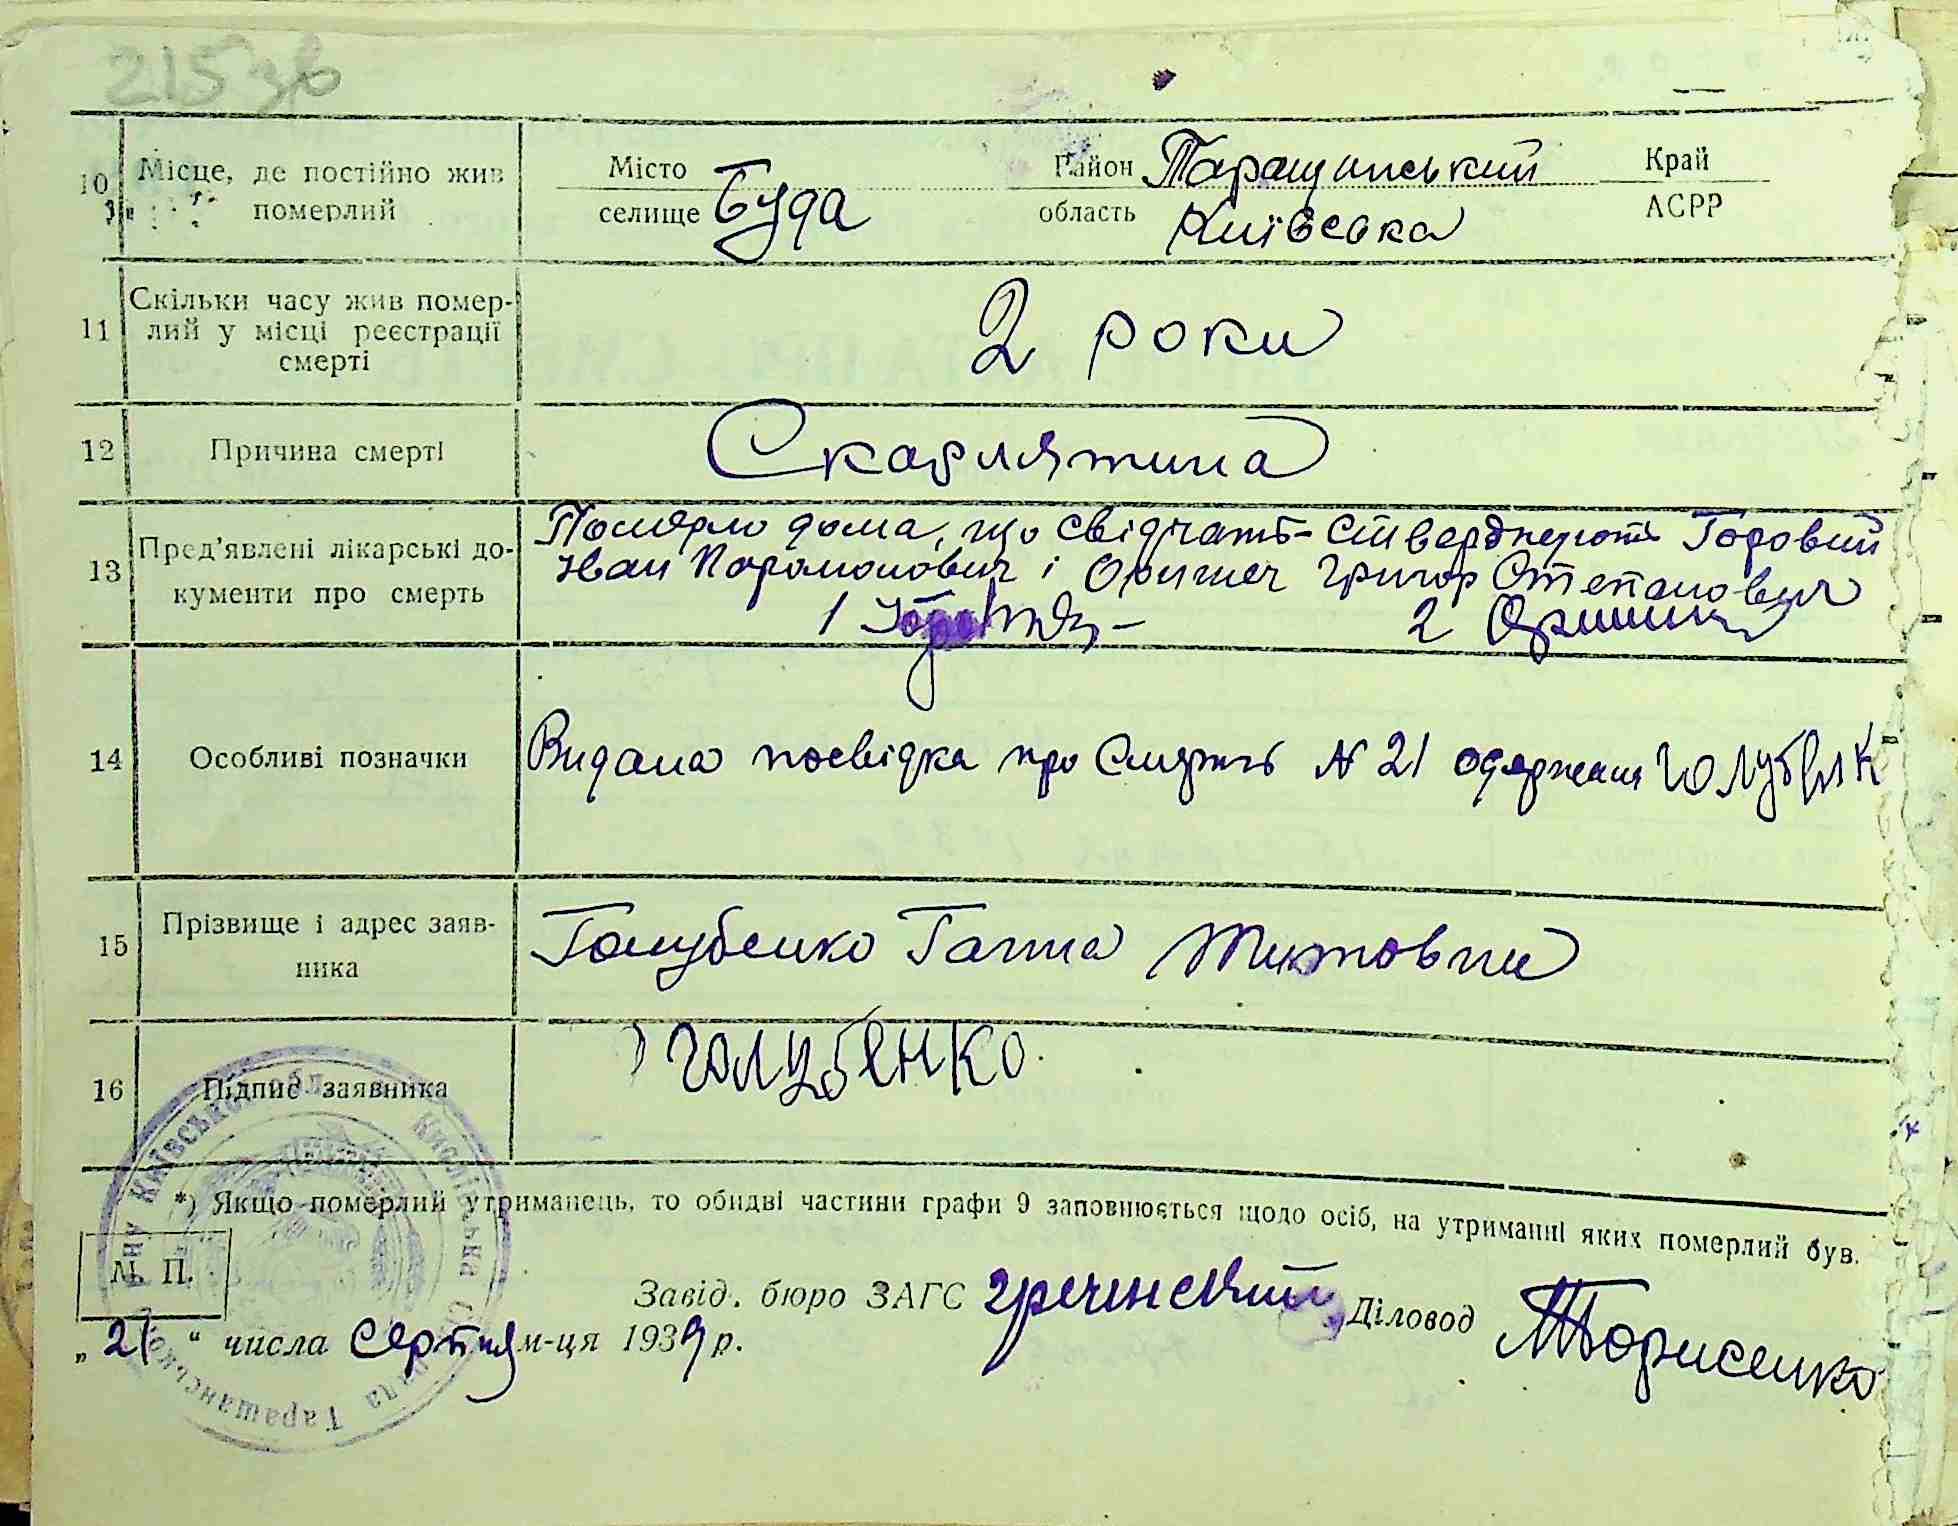 215 зв
10 Місце, де постійно жив померлий
Місто селище Буда
Район Таращинський Край
область Київська АСРР
11 Скільки часу жив помер-
лий у місці реєстрації
смерті
2 роки
12 Причина смерті Скарлятина
13 Пред'явлені лікарські до-
кументи про смерть
Померло дома, що свідчать-стверджують Горовий
Іван Парамонович і Григор Степанович
1 2
14 Особливі позначки Видана посвідка про смерть № 21 одержала
15 Прізвище і адрес заяв-
ника
Голубенко Ганна Титовна
16 Підпис заявника голубенко
*) Якщо померлий утриманець, то обидві частини графи 9 заповнюється щодо осіб, на утриманні яких померлий був.
М. П.
Завід. бюро ЗАГС гречинский Діловод Борисенко
„21“ числа серпня м-ця 1939 р.